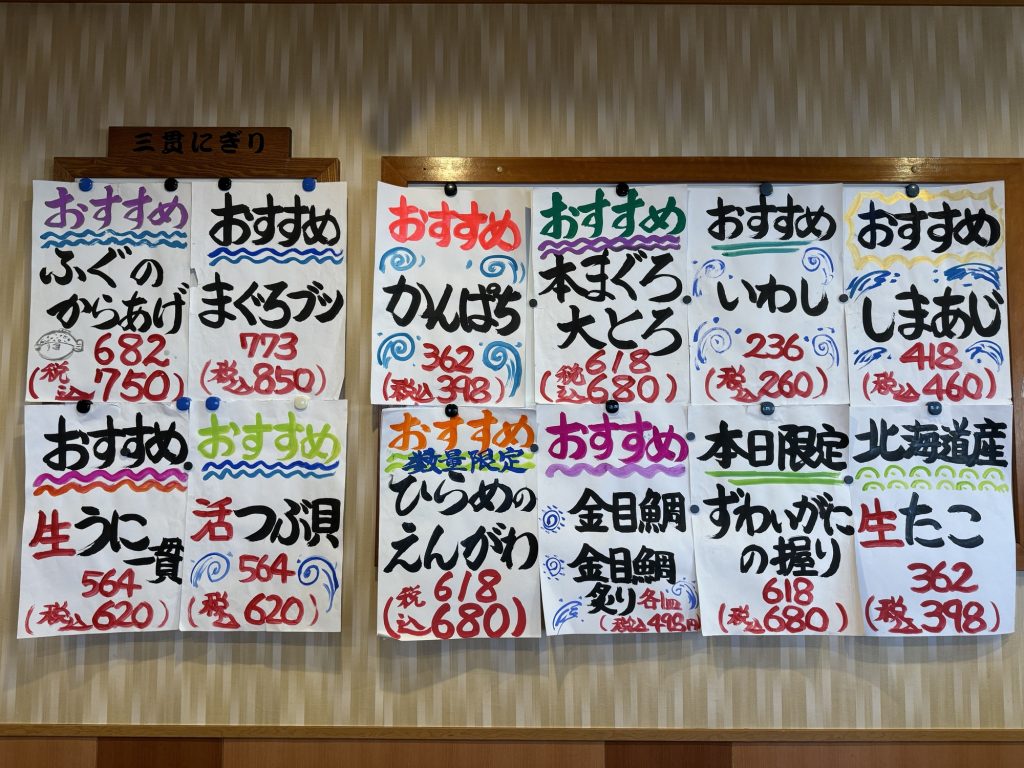 三貫にぎり
おすすめ
ふぐの
からあげ
682
(税込750)
おすすめ
まぐろブツ
773
(税込850)
おすすめ
かんぱち
362
(税込398)
おすすめ
本まぐろ
大とろ
618
(税込680)
おすすめ
いわし
236
(税込260)
おすすめ
しまあじ
418
(税込460)
おすすめ
生うに一貫
564
(税込620)
おすすめ
活つぶ貝
564
(税込620)
おすすめ
数量限定
ひらめの
えんがわ
618
(税込680)
おすすめ
金目鯛
金目鯛
炙り各皿
(税込498円
本日限定
ずわいがに
の握り
618
(税込680)
北海道産
生たこ
362
(税込398)